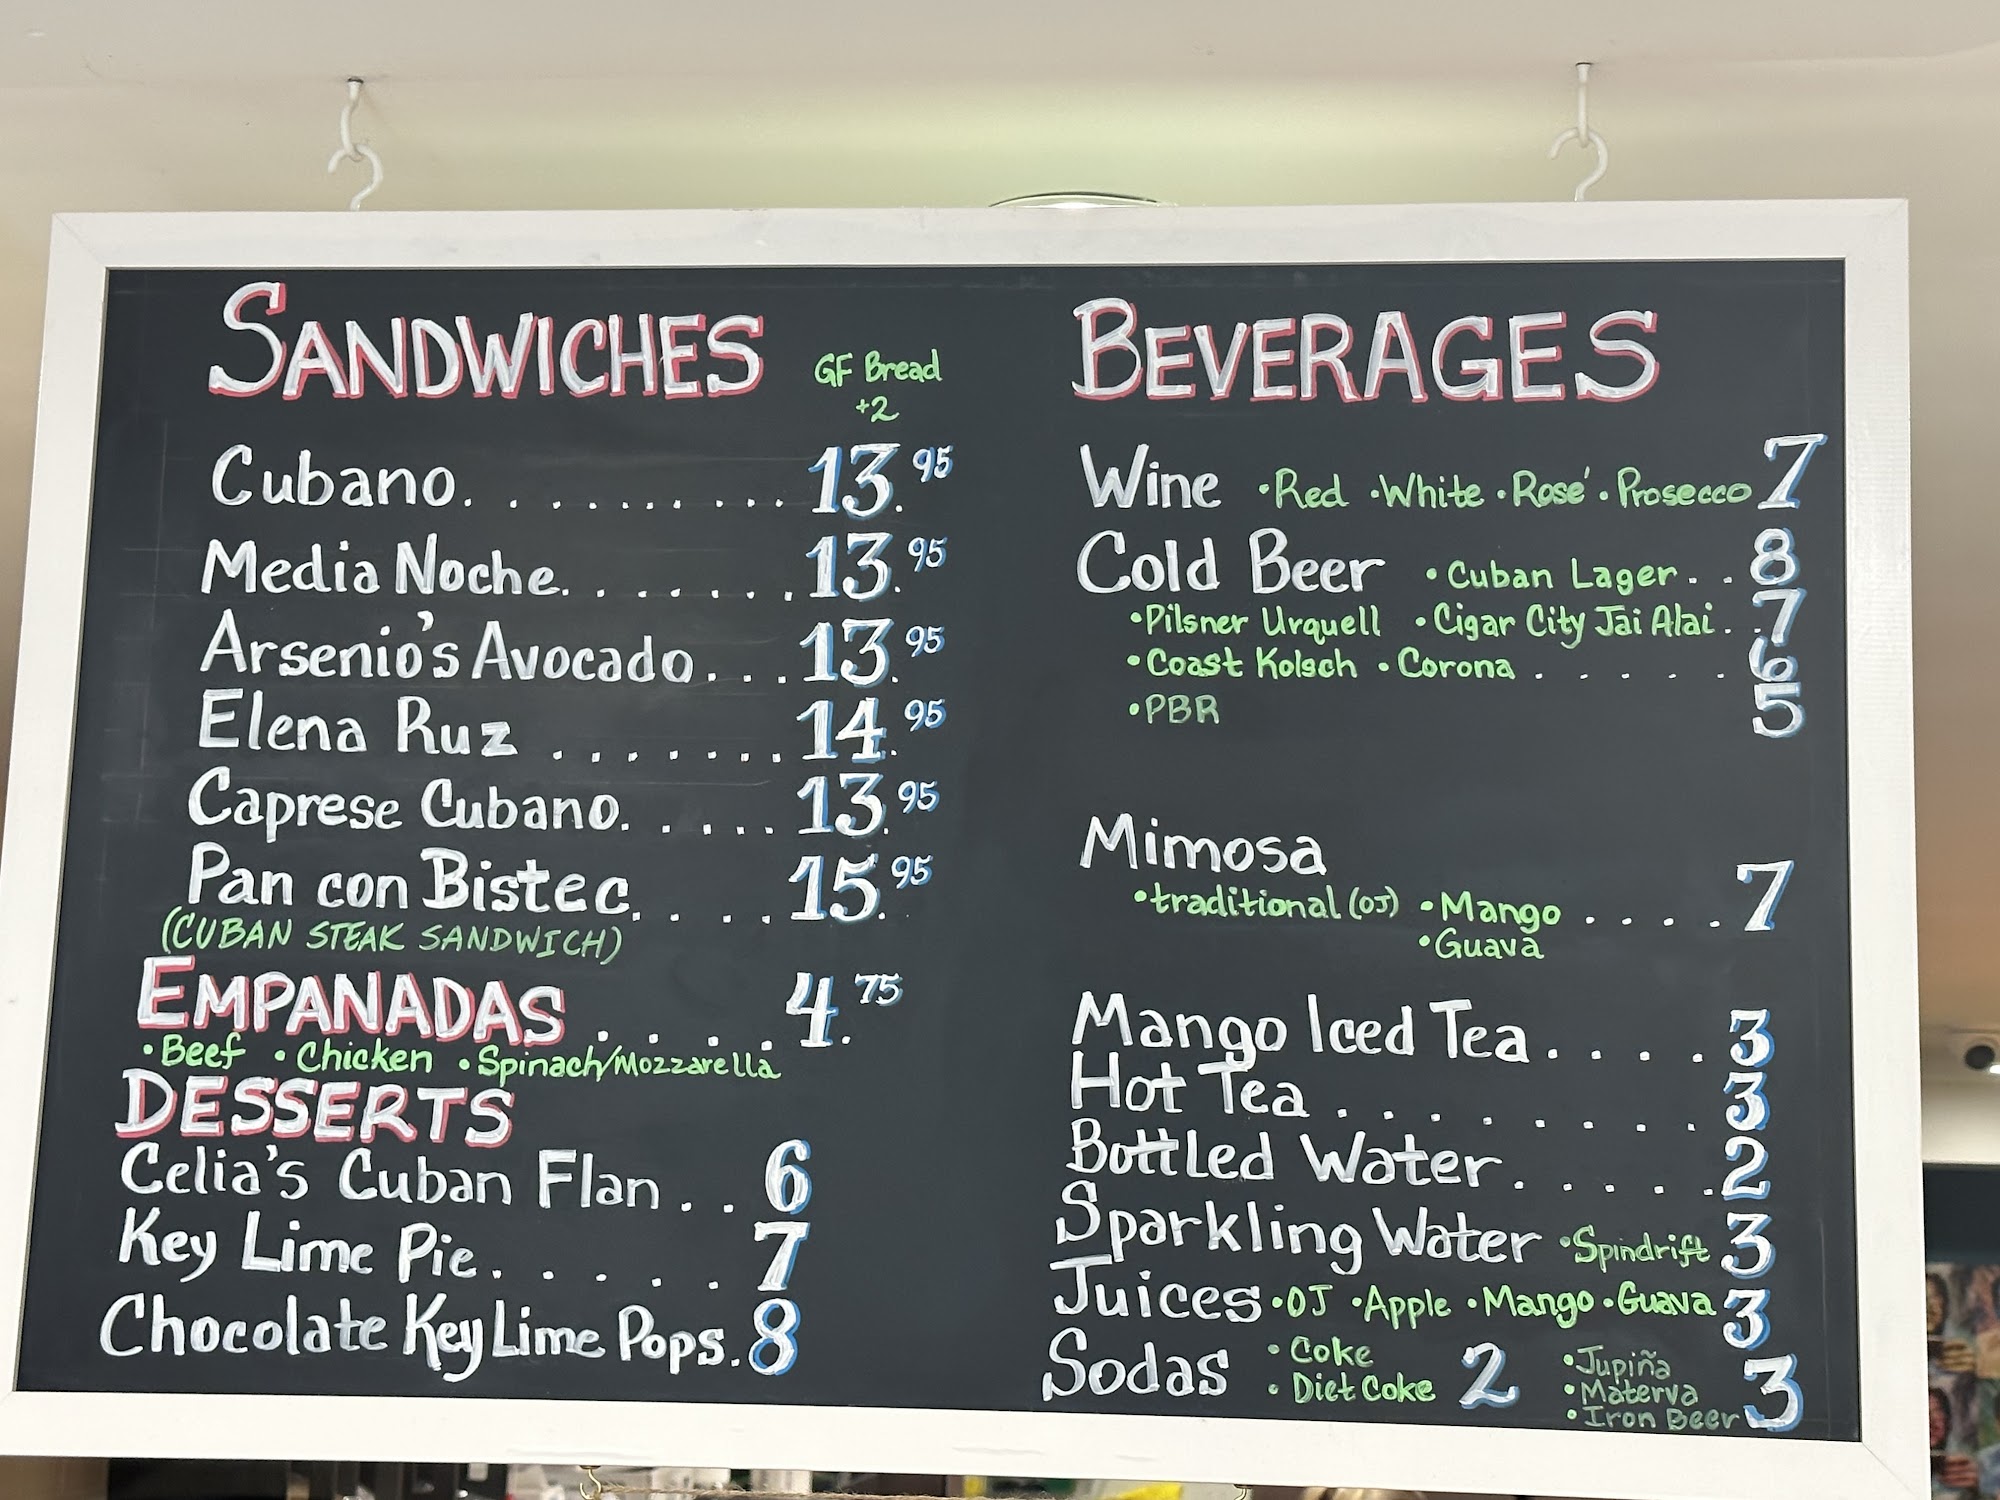 SANDWICHES
GF Bread
+2
Cubano. . . . . . . . . . 13.95
Media Noche. . . . . . . 13.95
Arsenio's Avocado. . . 13.95
Elena Ruz . . . . . . . 14.95
Caprese Cubano. . . . . 13.95
Pan con Bistec. . . . 15.95
(CUBAN STEAK SANDWICH)
EMPANADAS . . . . . 4.75
•Beef •Chicken •Spinach/Mozzarella
DESSERTS
Celia's Cuban Flan . . 6
Key Lime Pie. . . . . 7
Chocolate Key Lime Pops. 8
BEVERAGES
Wine •Red •White •Rosé •Prosecco 7
Cold Beer •Cuban Lager . . 8
•Pilsner Urquell •Cigar City Jai Alai . . 7
•Coast Kolsch •Corona . . . . . 6
•PBR 5
Mimosa
•traditional (OJ) •Mango . . . . 7
•Guava
Mango Iced Tea . . . . 3
Hot Tea . . . . . . . . 3
Bottled Water . . . . . 2
Sparkling Water •Spindrift 3
Juices •OJ •Apple •Mango •Guava 3
Sodas •Coke •Diet Coke 2 •Jupiña •Materva •Iron Beer 3